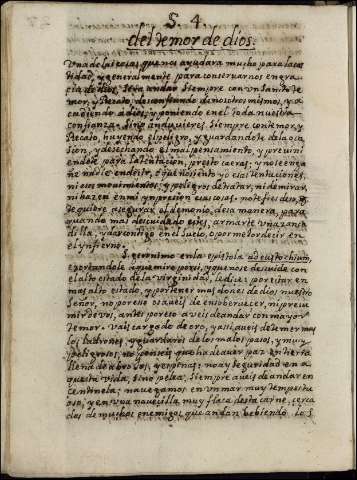 S. 4.
del temor de dios.
Una de las cosas que nos ayudara mucho para la cas
tidad, y generalmente para conservarnos en gra
cia de dios. Sera andar siempre con un santo te
mor, y Recato, desconfiando de nosotros mismos, y a
cudiendo a dios, y poniendo en el toda nuestra
confianza. Sino anduvieres siempre con temor, y
Recato, huyendo el peligro, y guardandote de la oca
sion, y desechando el mal pensamiento, y previni
endote para la tentacion, presto caeras; y no te enga
ñe nadie en decirte, que no siento yo esas tentaciones,
ni esos movimientos, y peligros de tratar, ni de mirar,
ni hazen en mi ynpresion esas cosas. no te fies de eso,
te quiere asegurar el demonio, desa manera, para
quando mas descuidado estes, armarte una zanca
dilla, y dar contigo en el suelo, o por mejor decir en
el ynfierno.
S. Geronimo en la epistola ad eustochium,
exortandole a que mire por si, y que no se descuide con
el alto estado de la virginidad, le dice: por estar en
mas alto estado, y por tener mas dones de dios nuestro
Señor, no por eso os aveis de ensoberuecer, ni presu
mir de vos, antes por eso aveis de andar con mayor
temor. Vais cargado de oro, y asi aueis de temer mas
los ladrones, y guardaros de los malos pasos, y muy
peligrosos; no penseis que ha de auer paz en tierra
llena de abrojos, y espinas; no ay seguridad en a
questa vida, sino pelea, siempre aveis de andar en
centinela; navegamos en un mar muy tempestu
oso, y en una navezilla muy flaca desta carne, cerca
dos de muchos enemigos, que andan bebiendo los